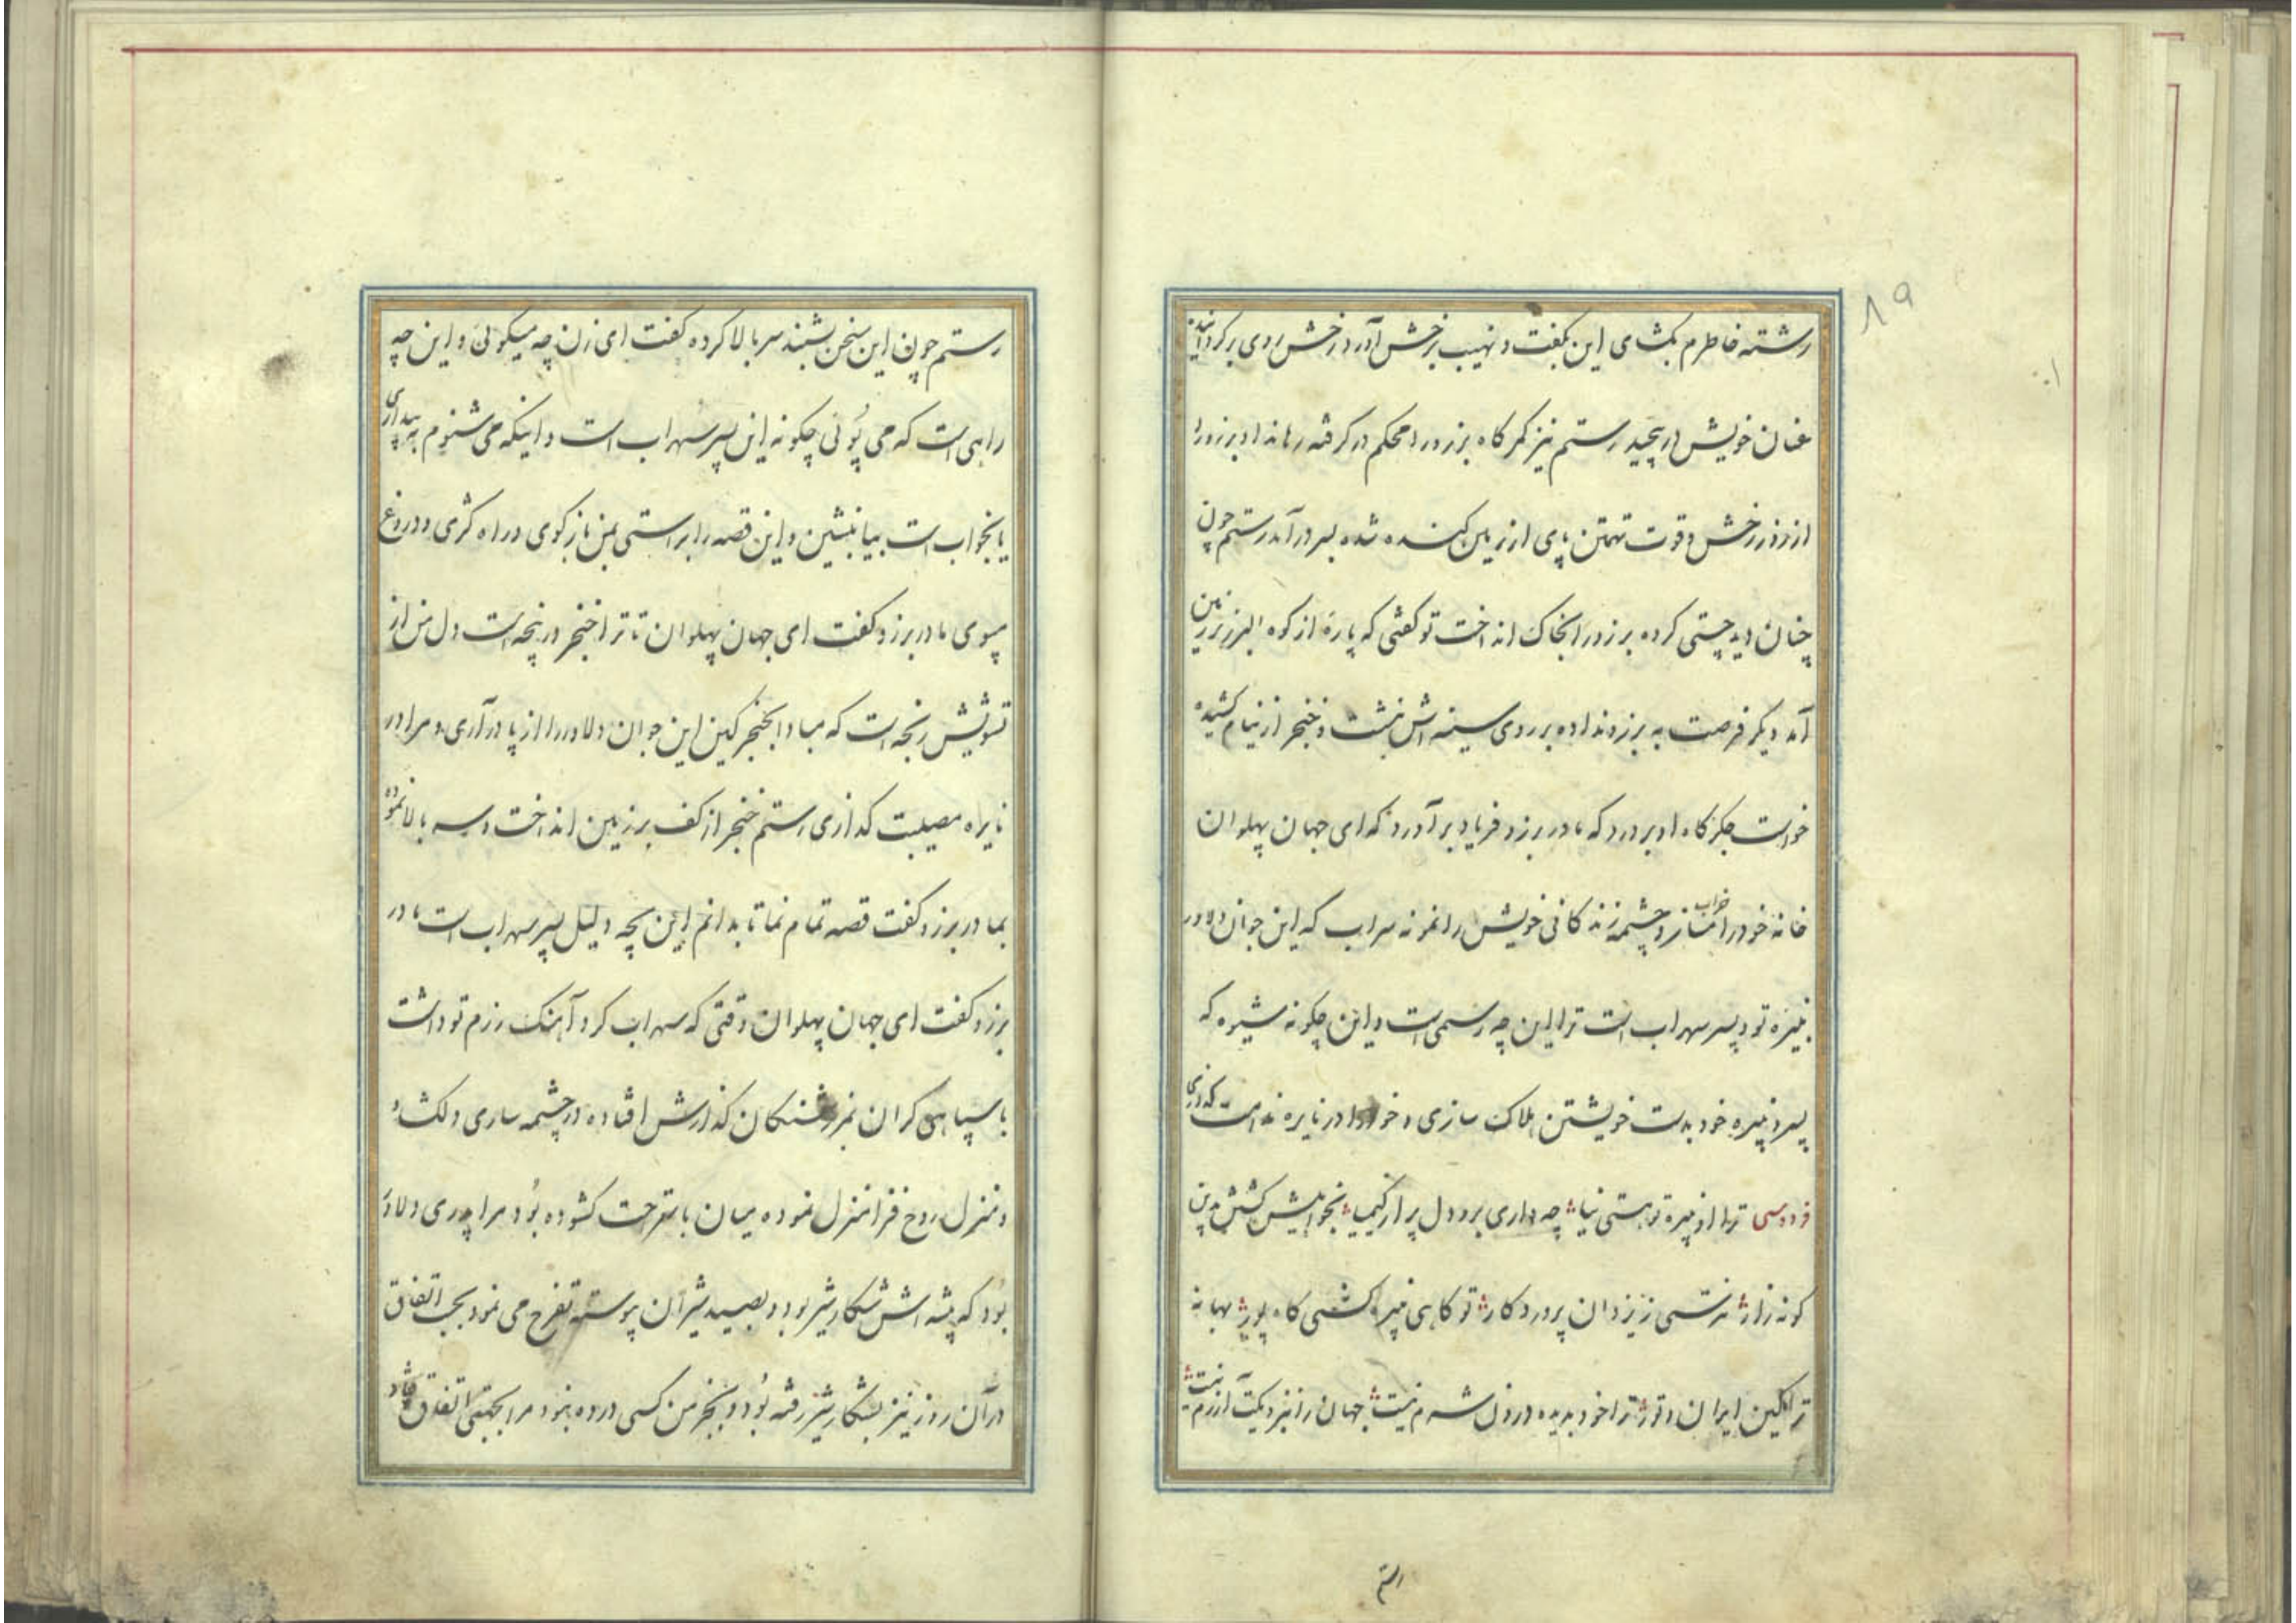 ۸۹
رشته خاطرم بگشای این بگفت و نهیب برخش آورد رخش روی برگردانیده
عنان خویش در پیچید رستم نیز کمرگاه برزو را محکم در گرفته رها نداد برزو را
از زور رخش و قوت تهمتن پای از زمین کنده شده بسر در آمد رستم چون
چنان دید چستی کرده برزو را بخاک انداخت تو گفتی که پارۀ از کوه البرز بر زمین
آمد دیگر فرصت به برزو نداده بر روی سینه اش نشست و خنجر از نیام کشیده
خواست جگرگاه او بردرد که مادر برزو فریاد برآورد که ای جهان پهلوان
خانه خود را خراب مساز و چشمه زندگانی خویش را نمونه سراب که این جوان دلاور
نبیره تو و پسر سهراب است ترا این چه رسمی است و این چگونه شیوه که
پسر و نبیره خود بدست خویشتن هلاک سازی و خود را در نایره ندامت گدازی
فردوسی ترا او نبیره تو هستی نیا چه داری برو دل پر از کیمیا بخواهیش کشتن بدین
گونه زار نترسی ز یزدان پروردگار تو گاهی نبیره کشی گاه پور بهانه
ترا کین ایران و تور ترا خود بدیده درون شرم نیست جهان را بنزدیکت آزرم نیست
رستم
رستم چون این سخن بشنید سر بالا کرده گفت ای زن چه میگوئی و این چه
راهی است که می پوئی چگونه این پسر سهراب است و اینکه می شنوم به بیداری
یا بخواب است بیا بنشین و این قصه را براستی بمن باز گوی و راه کژی و دروغ
مپوی مادر برزو گفت ای جهان پهلوان تا ترا خنجر در پنجه است دل من از
تشویش رنجه است که مبادا بخنجر کین این جوان دلاور را از پا درآری و مرا در
نایره مصیبت گدازی رستم خنجر از کف بر زمین انداخت و سر بالا نموده
بمادر برزو گفت قصه تمام نما تا بدانم این بچه دلیل پسر سهراب است مادر
برزو گفت ای جهان پهلوان وقتی که سهراب گرد آهنگ رزم تو داشت
با سپاهی گران بمرز شنگان گذارش افتاده در چشمه ساری دلگشا
و منزل روح فزا منزل نموده میان باستراحت گشوده بود مرا پدری دلاور
بود که پیشه اش شکار شیر بود و بصید شیران پیوسته تفرج می نمود بحسب اتفاق
در آن روز نیز بشکار شیر رفته بود و بجز من کسی در ده نبود مرا بجهتی اتفاق افتاد